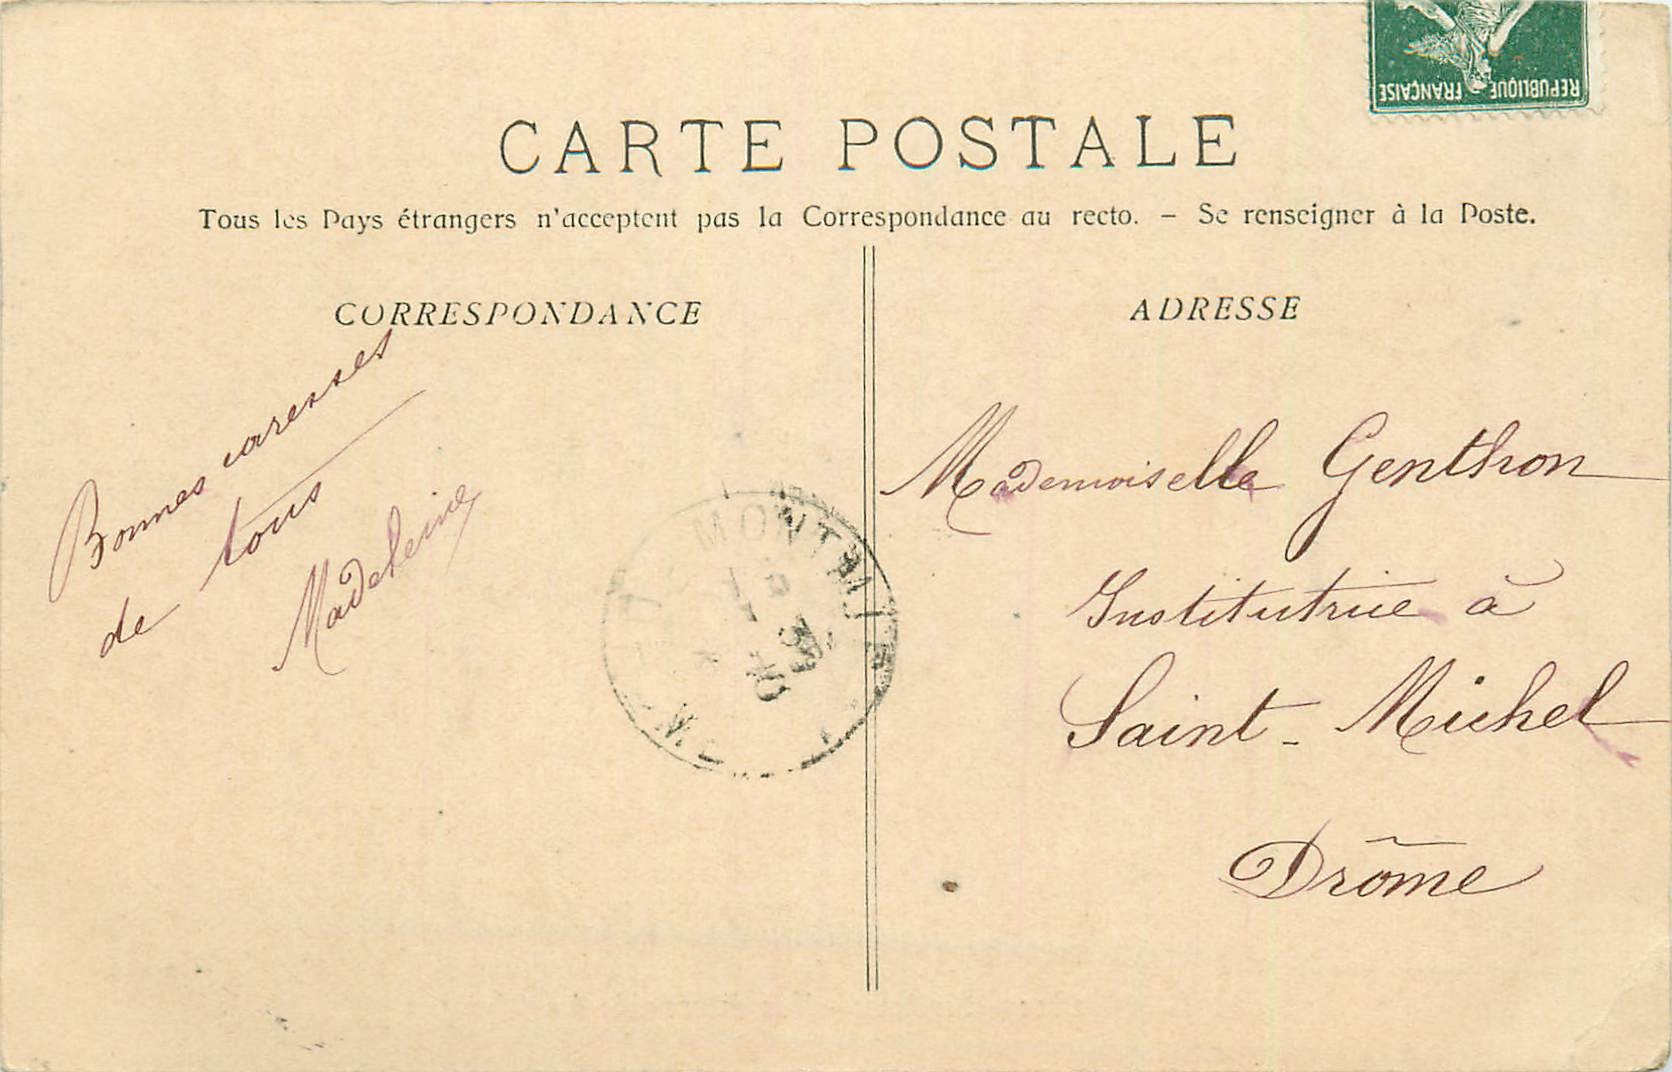 RÉPUBLIQUE FRANÇAISE
CARTE POSTALE
Tous les Pays étrangers n'acceptent pas la Correspondance au recto. – Se renseigner à la Poste.
CORRESPONDANCE
Bonnes caresses
de tous
Madeleine
ADRESSE
Mademoiselle Genthon
Institutrice à
Saint-Michel
Drôme